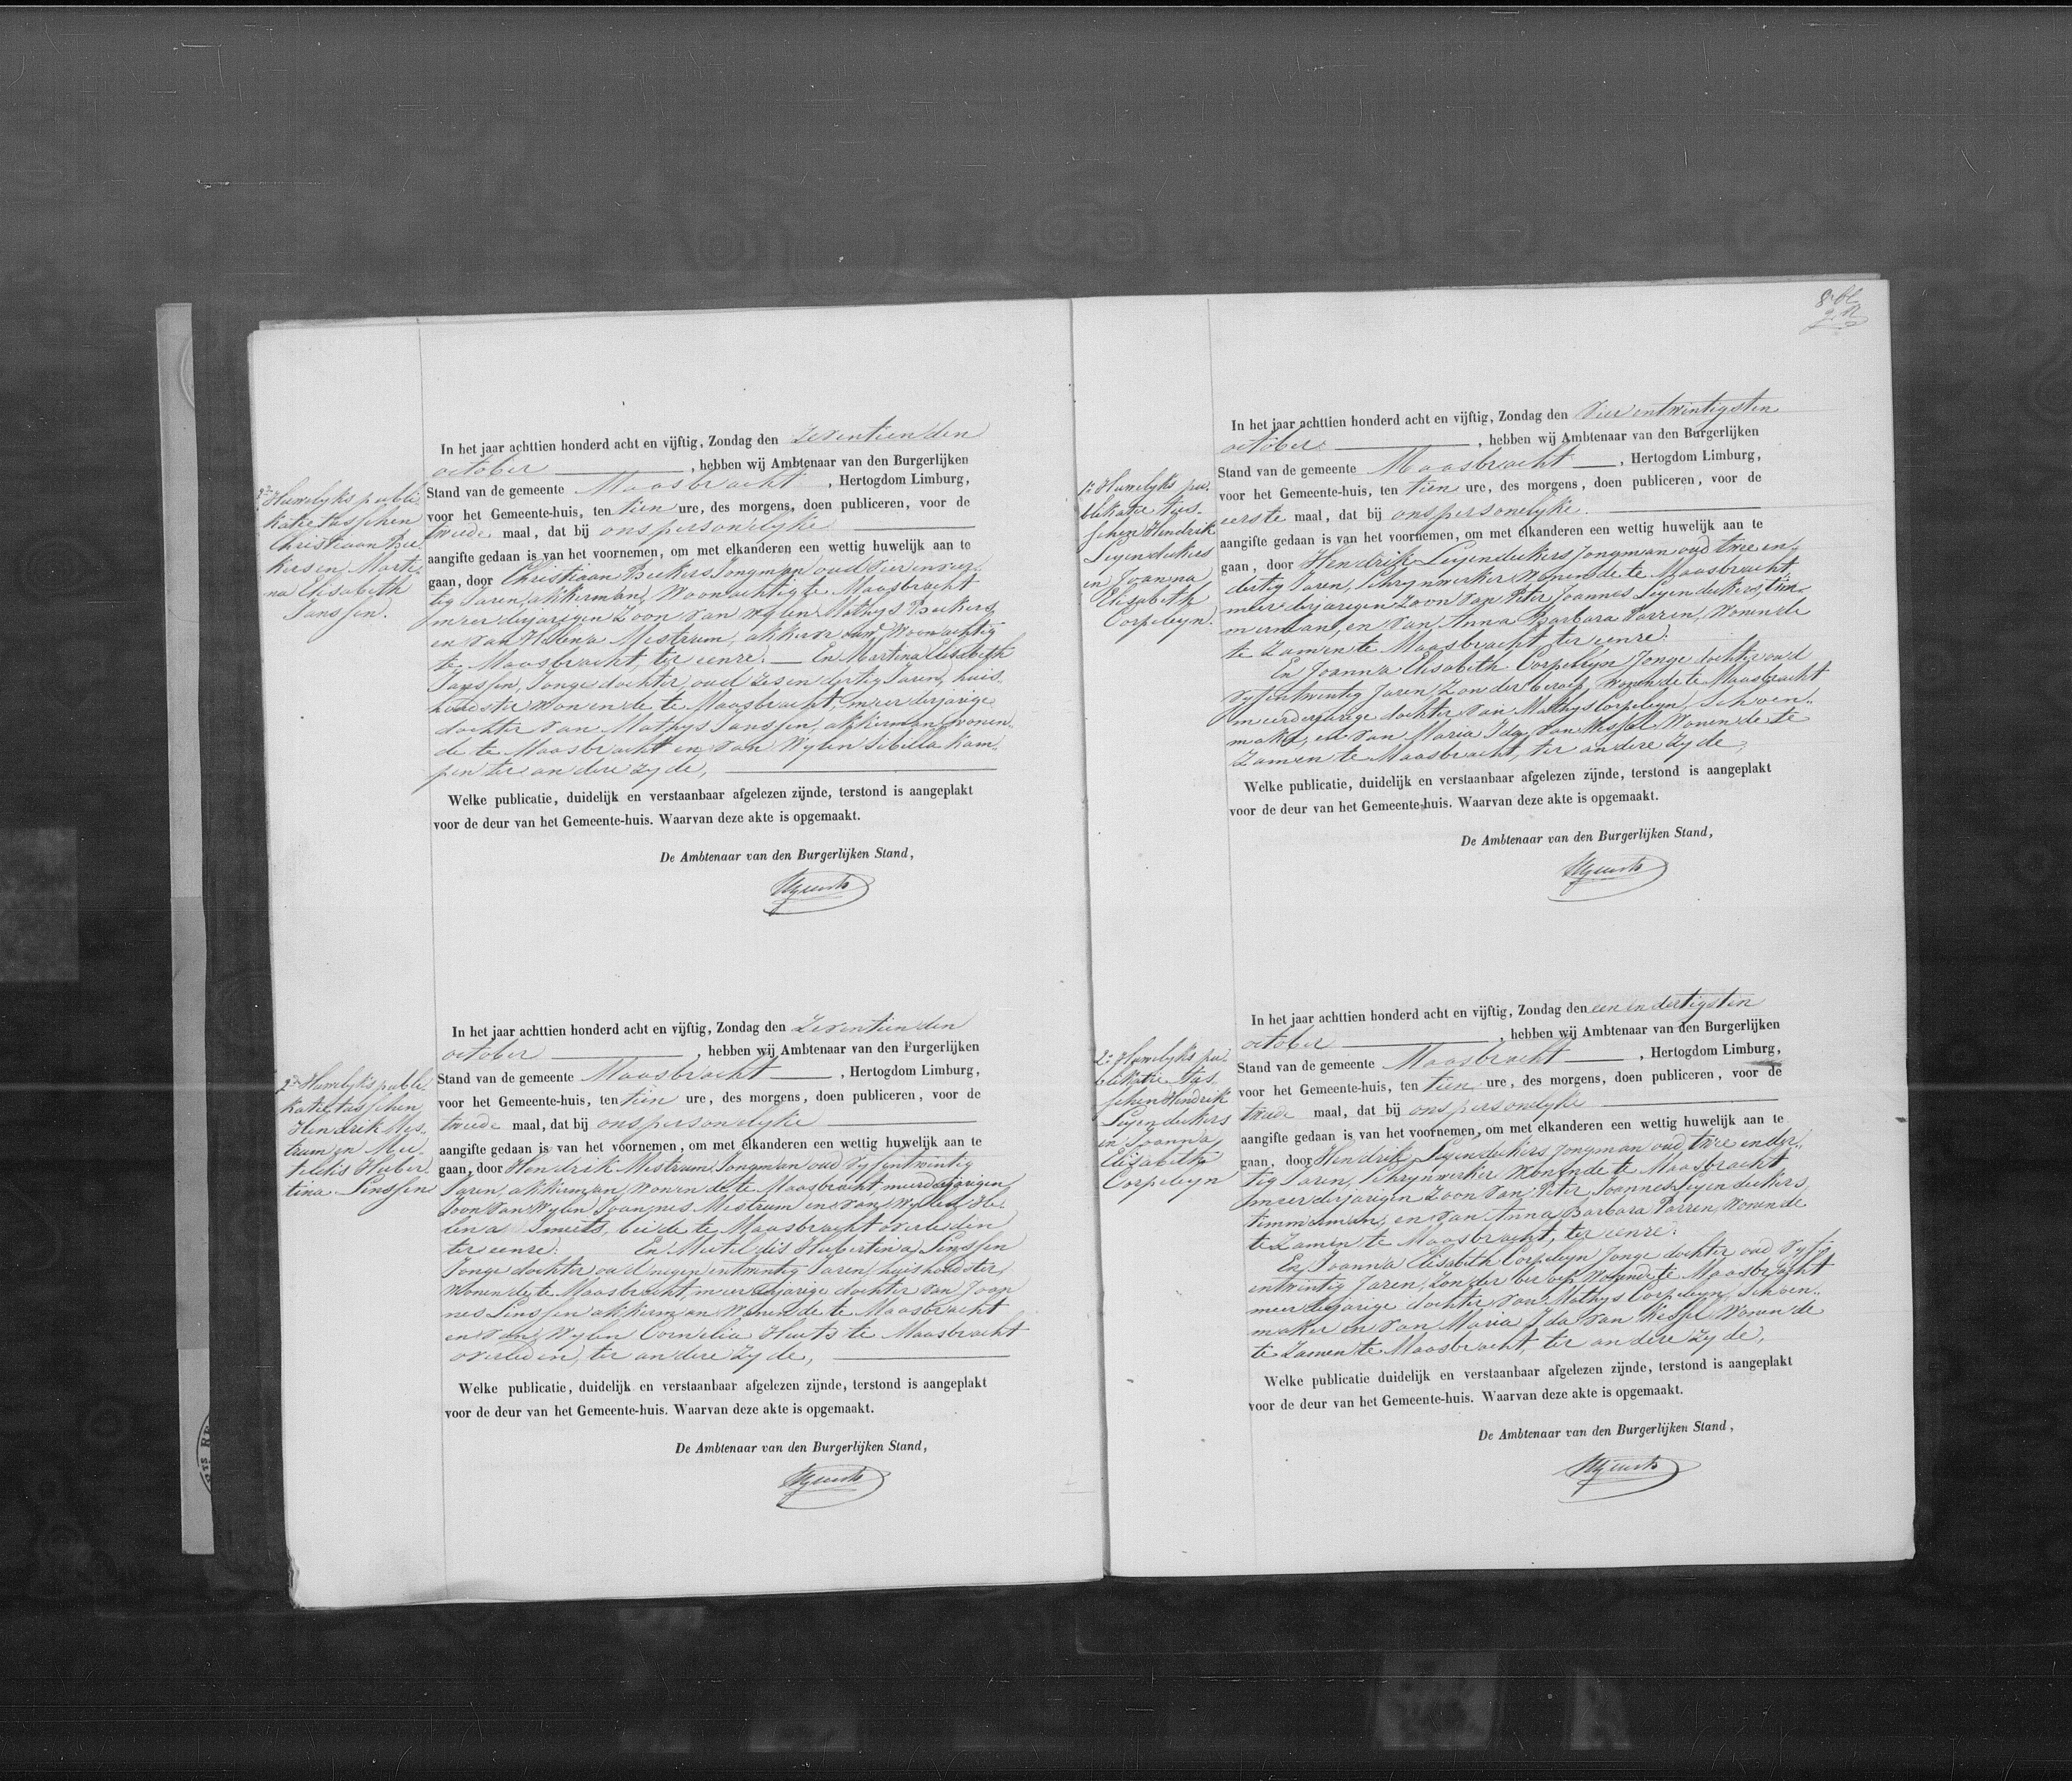 2de Huwelyks publi
katie tusschen
Christiaan Bee
kers en Marti
na Elisabeth
Janssen.
In het jaar achttien honderd acht en vijftig, Zondag den zeventienden
october , hebben wij Ambtenaar van den Burgerlijken
Stand van de gemeente Maasbracht , Hertogdom Limburg,
voor het Gemeente-huis, ten tien ure, des morgens, doen publiceren, voor de
tweede maal, dat bij ons personelyke
aangifte gedaan is van het voornemen, om met elkanderen een wettig huwelijk aan te
gaan, door Christiaan Beekers Jongman oud vier en veer
tig Jaren, akkerman, Woonachtig te Maasbracht
meerderjarigen Zoon van wylen Mathys Beekers
en van Helena Mestrum, akkervrouw, Woonachtig
te Maasbracht, ter eenre. En Martina Elisabeth
Janssen, Jonge dochter, oud zes en dertig Jaren, huis-
houdster Wonende te Maasbracht, meerderjarige
dochter van Mathys Janssen, akkerman, wonen-
de te Maasbracht en van Wylen Sibilla Kam-
pen ter andere zyde,
Welke publicatie, duidelijk en verstaanbaar afgelezen zijnde, terstond is aangeplakt
voor de deur van het Gemeente-huis. Waarvan deze akte is opgemaakt.
De Ambtenaar van den Burgerlijken Stand,
2de Huwelyks publi
katie tusschen
Hendrik Mes-
trum en Meu-
tildis Huber
tina Linssen
In het jaar achttien honderd acht en vijftig, Zondag den zeventienden
october , hebben wij Ambtenaar van den Burgerlijken
Stand van de gemeente Maasbracht , Hertogdom Limburg,
voor het Gemeente-huis, ten tien ure, des morgens, doen publiceren, voor de
tweede maal, dat bij ons personelyke
aangifte gedaan is van het voornemen, om met elkanderen een wettig huwelijk aan te
gaan, door Hendrik Mestrum Jongman oud vyfentwintig
Jaren, akkerman, Wonende te Maasbracht, meerderjarigen
Zoon van Wylen Joannes Mestrum en van Wylen He-
lena Smeets, beide te Maasbracht overleden
ter eenre. En Meutildis Hubertina Linssen
Jonge dochter oud negen entwintig Jaren, huishoudster
Wonende te Maasbracht, meerderjarige dochter van Joan
nes Linssen akkerman Wonende te Maasbracht
en van Wylen Cornelia Heuts te Maasbracht
overleden, ter andere zyde,
Welke publicatie, duidelijk en verstaanbaar afgelezen zijnde, terstond is aangeplakt
voor de deur van het Gemeente-huis. Waarvan deze akte is opgemaakt.
De Ambtenaar van den Burgerlijken Stand,
8e bl
1e Huwelyks pu-
blikatie tus-
schen Hendrik
Leyendeckers
en Joanna
Elisabeth
Corpeleyn.
In het jaar achttien honderd acht en vijftig, Zondag den vierentwintigsten
october , hebben wij Ambtenaar van den Burgerlijken
Stand van de gemeente Maasbracht , Hertogdom Limburg,
voor het Gemeente-huis, ten tien ure, des morgens, doen publiceren, voor de
eerste maal, dat bij ons personelyke.
aangifte gedaan is van het voornemen, om met elkanderen een wettig huwelijk aan te
gaan, door Hendrik Leyendeckers Jongman oud twee en
dertig Jaren, Schrynwerker Wonende te Maasbracht
meerderjarigen Zoon van Peter Joannes Leyendeckers, tim-
merman, en van Anna Barbara Parren, Wonende
te Zamen te Maasbracht ter eenre.
En Joanna Elisabeth Corpeleyn Jonge dochter oud
vyfentwintig Jaren, Zonder beroep Wonende te Maasbracht
meerderjarige dochter van Mathys Corpeleyn, Schoen-
maker, en van Maria Ida van Kessel Wonende te
zamen te Maasbracht, ter andere zyde,
Welke publicatie, duidelijk en verstaanbaar afgelezen zijnde, terstond is aangeplakt
voor de deur van het Gemeente-huis. Waarvan deze akte is opgemaakt.
De Ambtenaar van den Burgerlijken Stand,
2e Huwelyks pu-
blikatie tus-
schen Hendrik
Leyendeckers
en Joanna
Elisabeth
Corpeleyn
In het jaar achttien honderd acht en vijftig, Zondag den een en dertigsten
october , hebben wij Ambtenaar van den Burgerlijken
Stand van de gemeente Maasbracht , Hertogdom Limburg,
voor het Gemeente-huis, ten tien ure, des morgens, doen publiceren, voor de
tweede maal, dat bij ons personelyke
aangifte gedaan is van het voornemen, om met elkanderen een wettig huwelijk aan te
gaan, door Hendrik Leyendeckers Jongman oud twee en der-
tig Jaren, Schrynwerker Wonende te Maasbracht
meerderjarigen Zoon van Peter Joannes Leyendeckers
timmerman, en van Anna Barbara Parren, Wonende
te Zamen te Maasbracht, ter eenre.
En Joanna Elisabeth Corpeleyn Jonge dochter oud vyf
entwintig Jaren, Zonder beroep Wonende te Maasbracht
meerderjarige dochter van Mathys Corpeleyn, Schoen-
maker en van Maria Ida van Kessel Wonende
te Zamen te Maasbracht, ter andere zyde,
Welke publicatie duidelijk en verstaanbaar afgelezen zijnde, terstond is aangeplakt
voor de deur van het Gemeente-huis. Waarvan deze akte is opgemaakt.
De Ambtenaar van den Burgerlijken Stand,